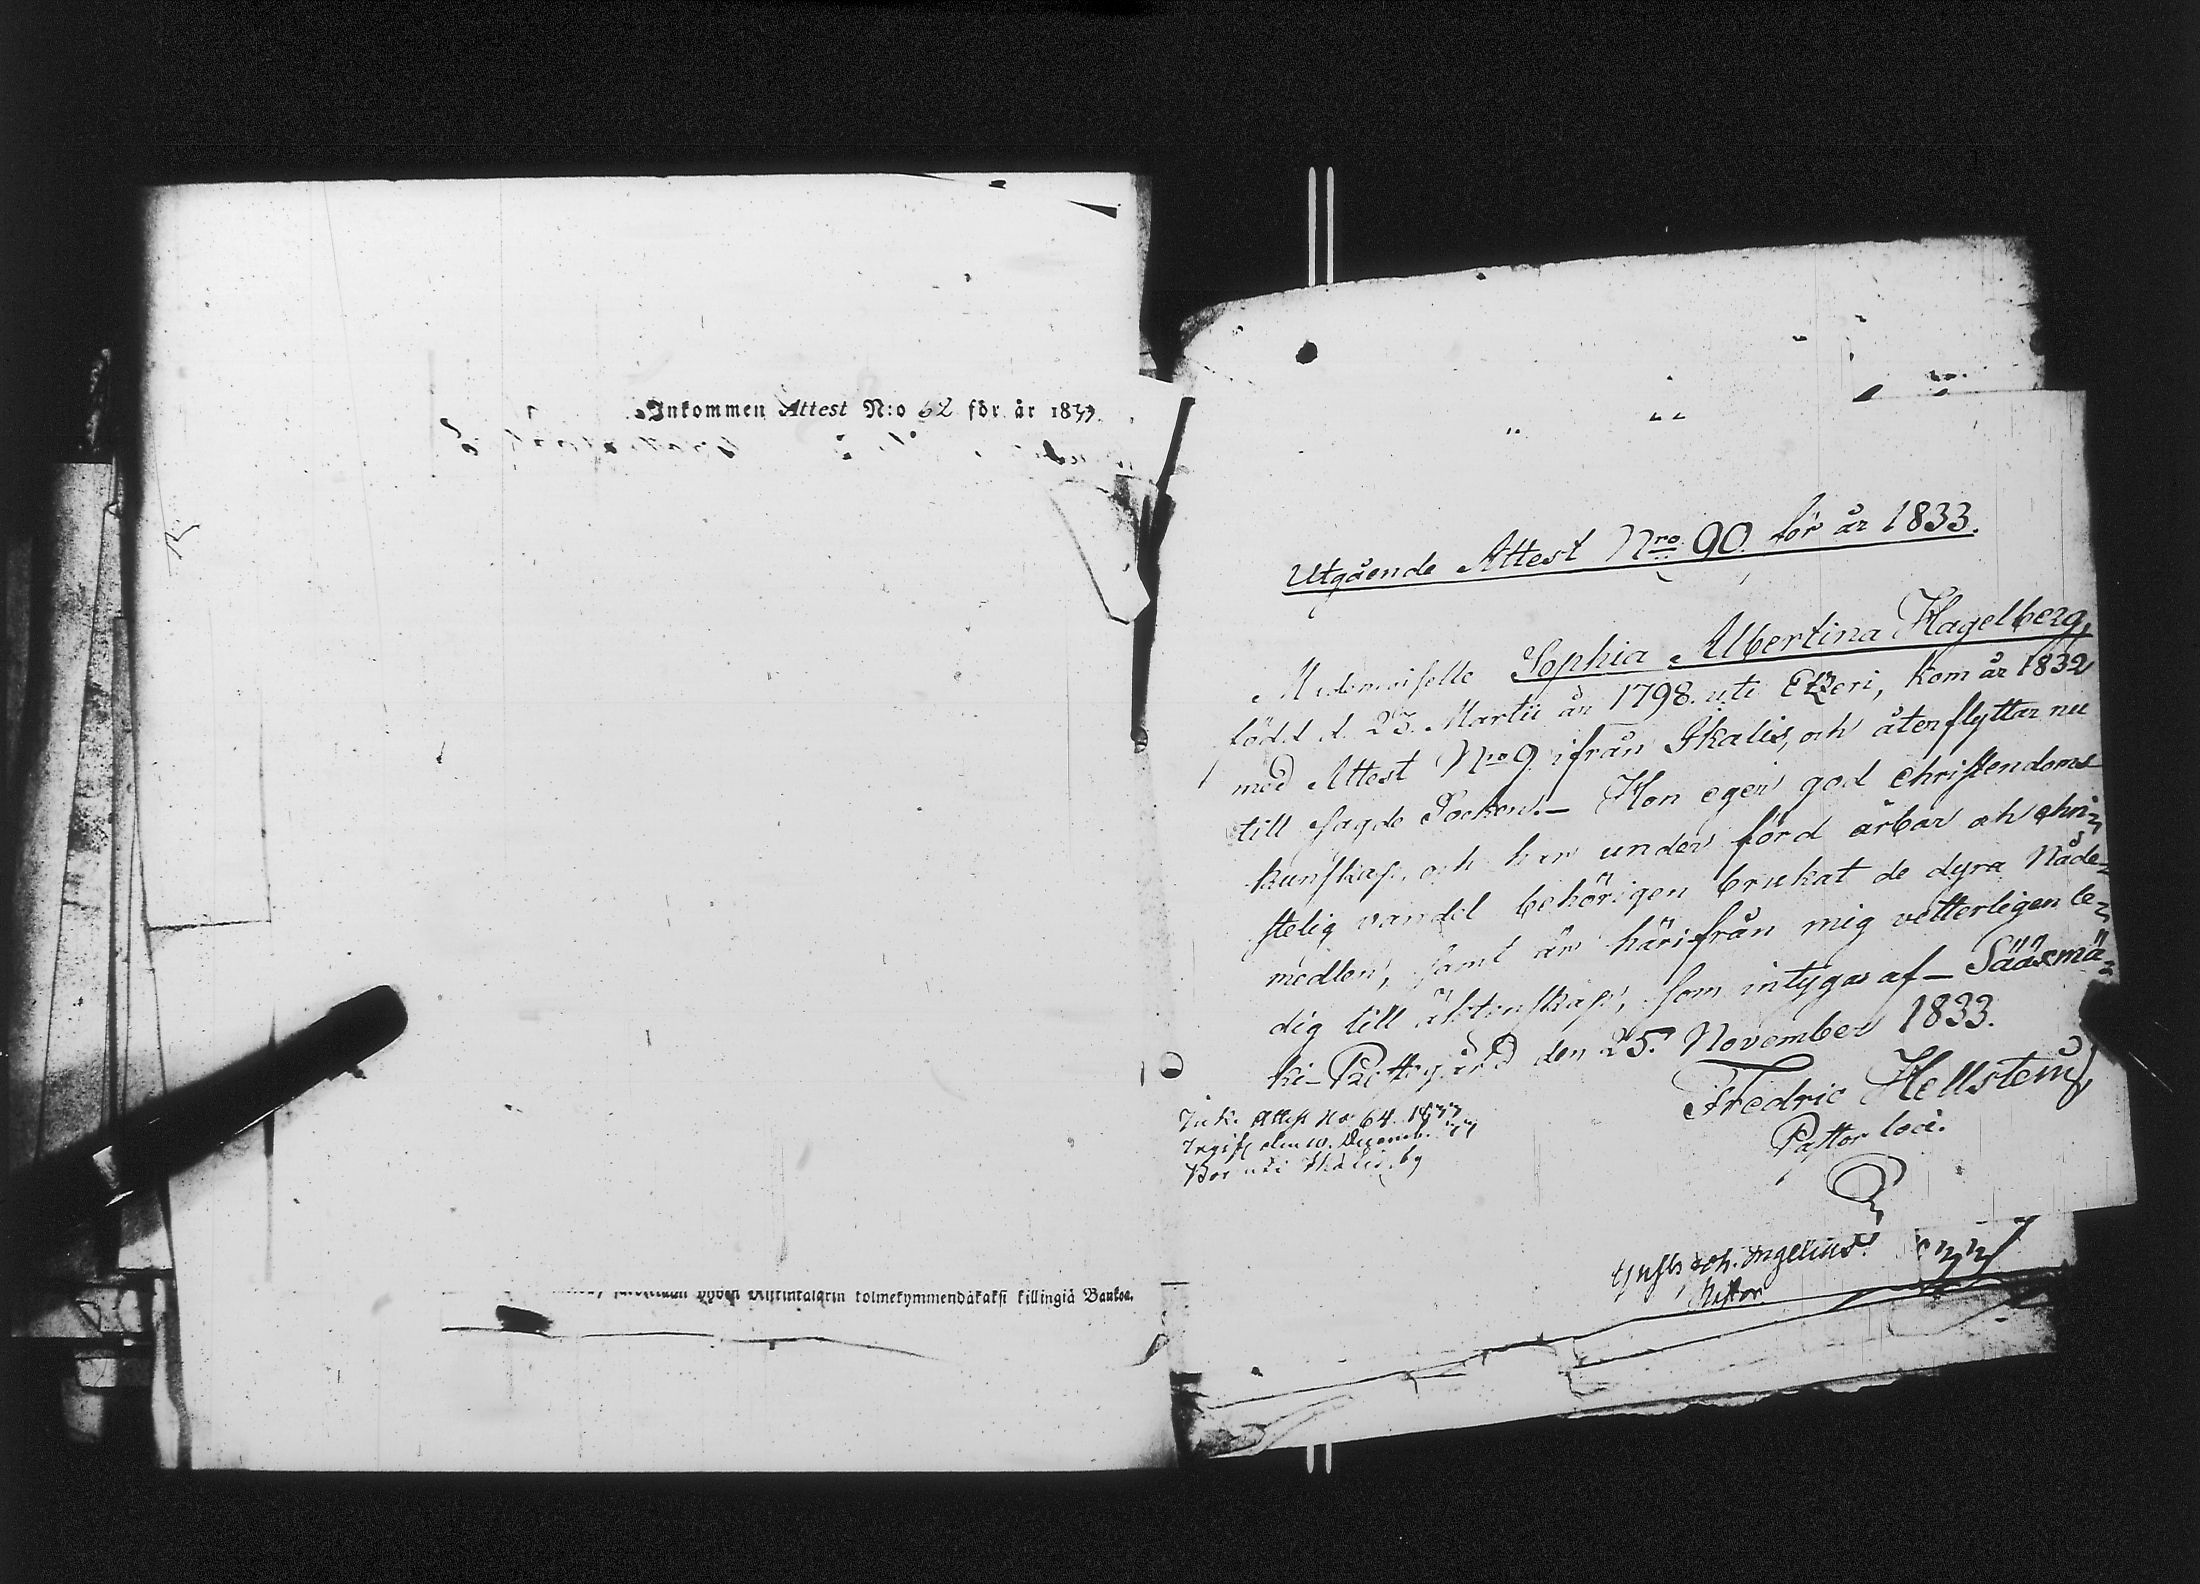 Inkommen Attest N:o 62 för år 1833.
kolmekymmendäkaksi killingiä Bankos.
Utgående Attest Nro 90. för år 1833.
Mademoiselle Sophia Albertina Hagelberg,
född d. 23. Martii år 1798. uti Etzeri, kom år 1832
med Attest Nro 9. ifrån Ikalis, och återflyttar nu
till sagde Socken. – Hon eger god christendoms
kunskap, och har under förd ärbar och chri-
stelig vandel behörigen brukat de dyra Nåde-
medlen, samt är härifrån mig vetterligen le-
dig till äktenskap, som intygas af – Sääxmä-
ki-Prestegård den 25. November 1833.
Fredric Hellsten
Pastor loci.
Ink. Attest No 64. 1833
Ingift den 10. Decemb. 33
Bor uti
Pastor